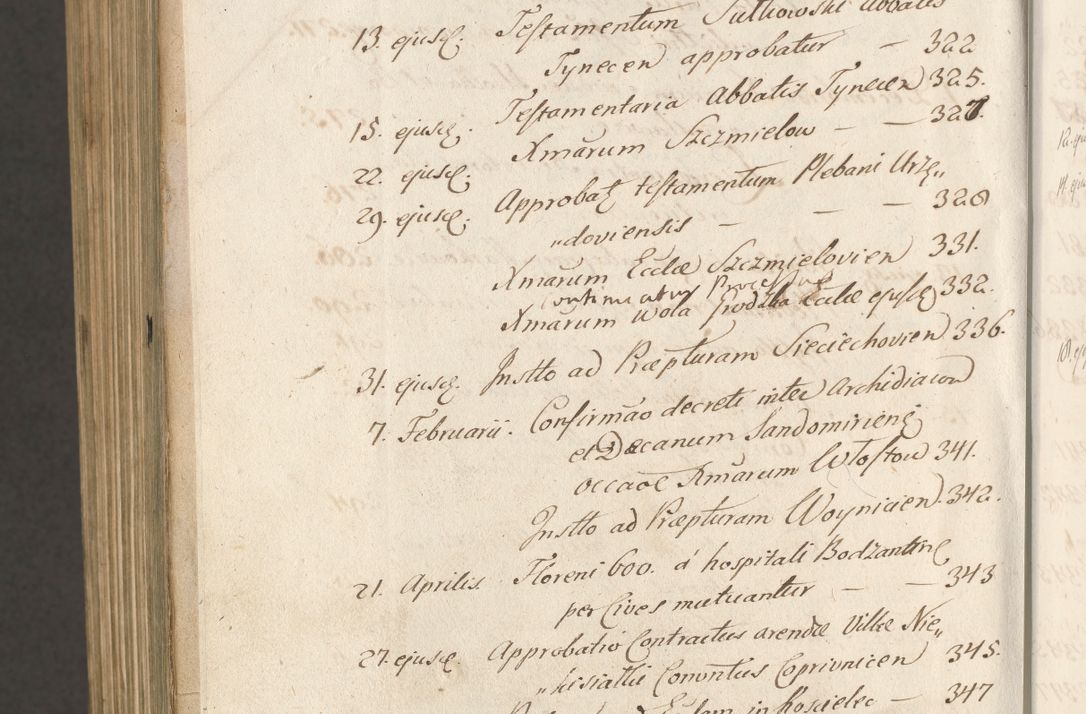 13. ejusd. Testamentum Sulkowski Abbatis
Tynecen approbatur — 322
15. ejusd. Testamentaria Abbatis Tynecen 325.
22. ejusd. Xmarum Szczmielow — — 327
29. ejusd. Approbat testamentum Plebani Urzę„
„doviensis — — — 328
Xmarum Eccłae Szczmielovien 331.
Continuatur Processus
Xmarum Wola Grodzka Eccłae ejusd 332.
31. ejusd. Instto ad Præpturam Sieciechovien 336.
7. Februarii. Confirmão decreti inter Archidiacon
et Decanum Sandomirieng
occaõe Xmarum Włostow 341.
Instto ad Præpturam Woynicien. 342.
21. Aprilis. Floreni 600. á hospitali Bodzantine
per Cives mutuantur — — 343
27. ejusd. Approbatio Contractus arendæ Villæ Nie„
„kisiałki Conventus Coprivnicen 345.
in Koscielec — 347